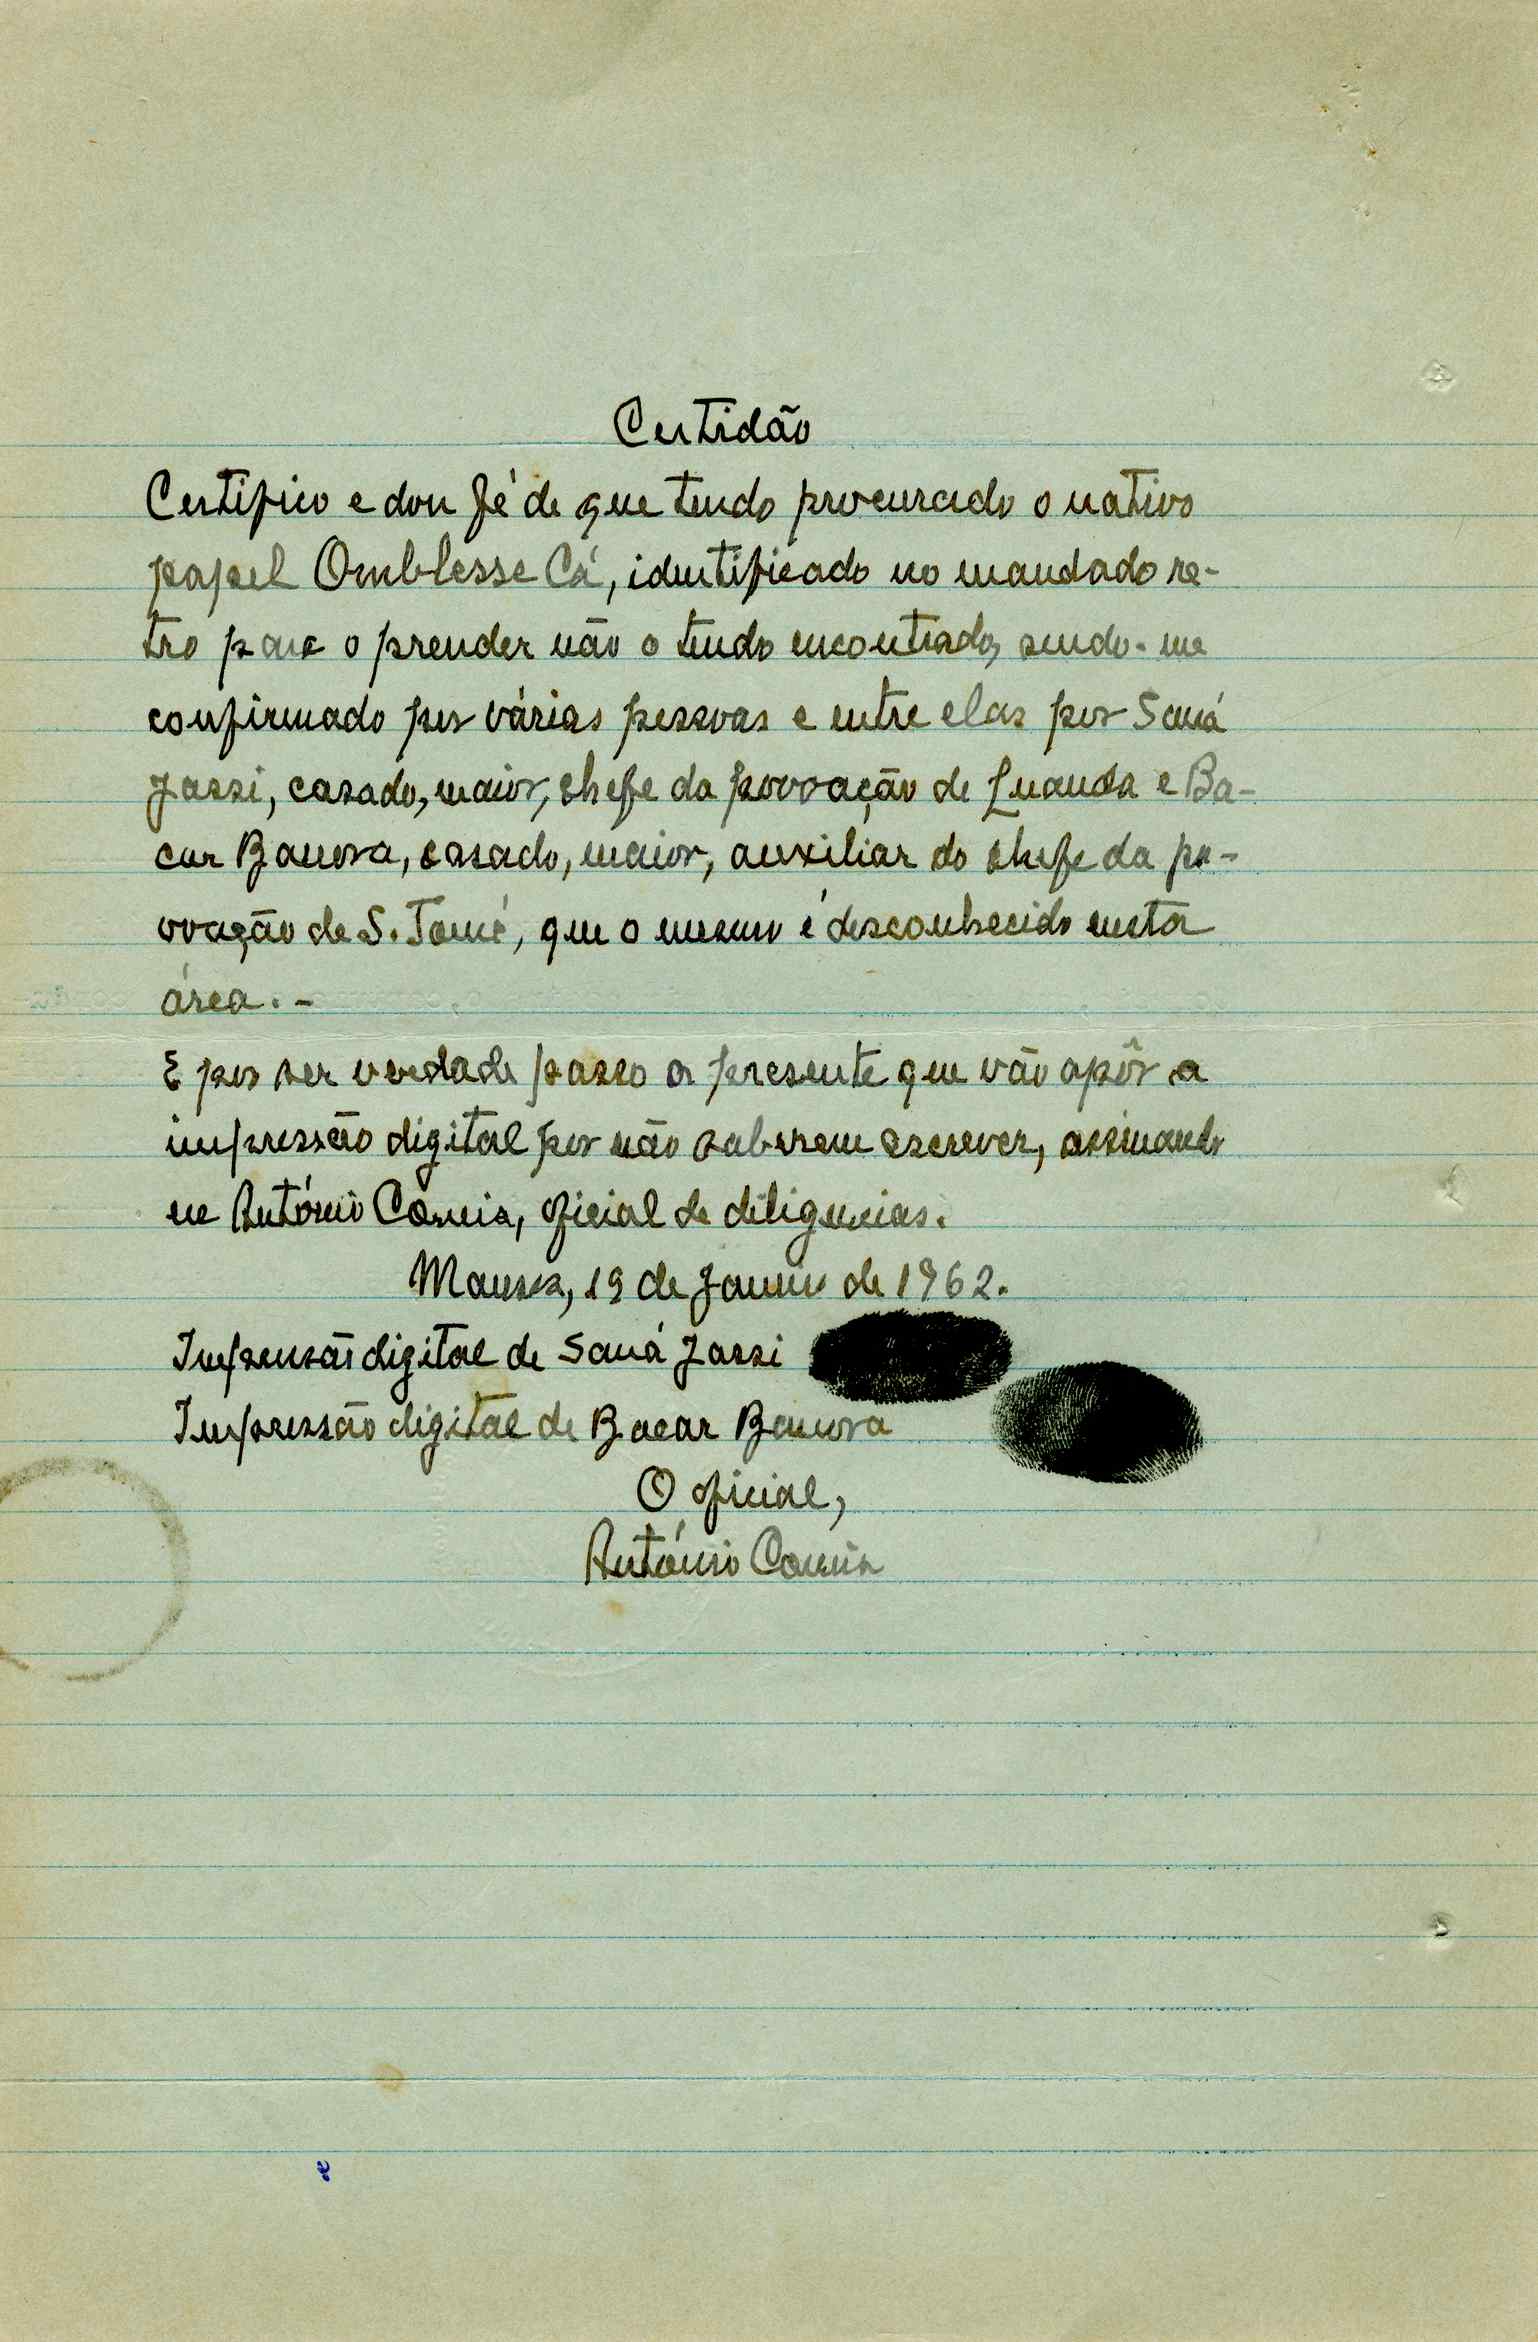 Certidão
Certifico e dou fé de que tendo procurado o nativo
papel Omblesse Cá, identificado no mandado re-
tro para o prender não o tendo encontrado, sendo-me
confirmado por várias pessoas e entre elas por Saná
Jassi, casado, maior, chefe da povoação de Luanda e Ba-
car Banora, casado, maior, auxiliar do chefe da po-
voação de S. Tomé, que o mesmo é desconhecido nesta
área. -
E por ser verdade passo a presente que vão apôr a
impressão digital por não saberem escrever, assinando
eu António Correia, oficial de diligencias.
Mansoa, 19 de Janeiro de 1962.
Impressão digital de Saná Jassi
Impressão digital de Bacar Banora
O oficial,
António Correia